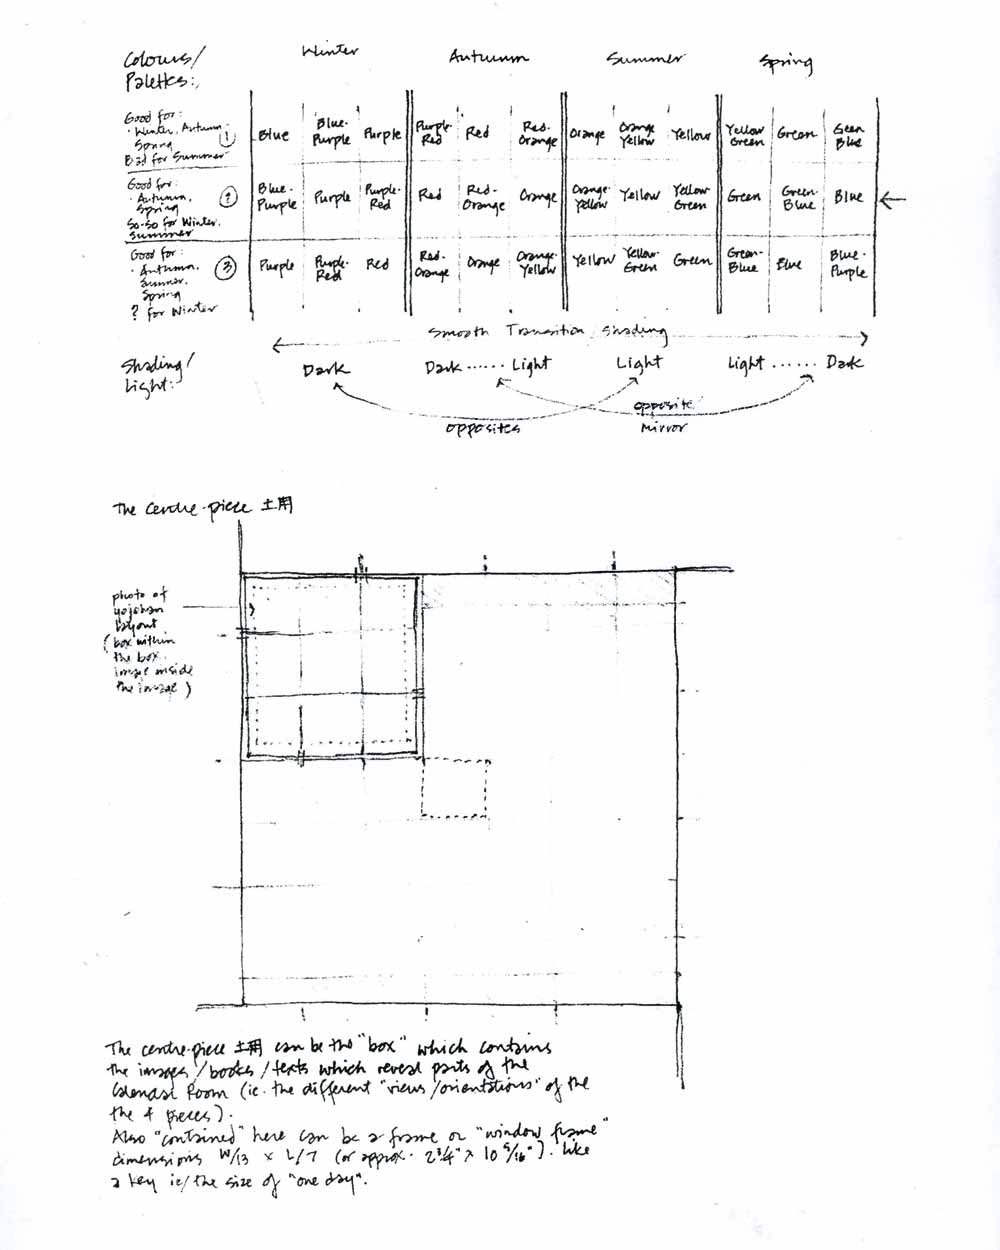 Colours/
Palettes:
Winter Autumn Summer Spring
Good for:
· Winter, Autumn
Spring
Bad for Summer
① Blue Blue-Purple Purple Purple-Red Red Red-Orange Orange Orange Yellow Yellow Yellow Green Green Geen Blue
Good for:
· Autumn,
Spring
So-So for Winter,
Summer
② Blue-Purple Purple Purple-Red Red Red-Orange Orange Orange-Yellow Yellow Yellow Green Green Green-Blue Blue ←
Good for:
· Autumn,
Summer,
Spring
? for Winter
③ Purple Purple-Red Red Red-Orange Orange Orange-Yellow Yellow Yellow-Green Green Green-Blue Blue Blue-Purple
Smooth Transition Shading
Shading/
Light:
Dark Dark ...... Light Light Light ...... Dark
Opposites
Opposite/
Mirror
The centre-piece 土用
photo of
yojohan
layout
(box within
the box
image inside
the image)
The centre-piece 土用 can be the "box" which contains
the images/books/texts which reveal parts of the
Calendar Room (ie. the different "views/orientations" of the
the 4 pieces).
Also "contained" here can be a frame or "window frame"
dimensions W/13 x L/7 (or approx. 2 3/4" x 10 5/16"). Like
a key ie/ the size of "one day".